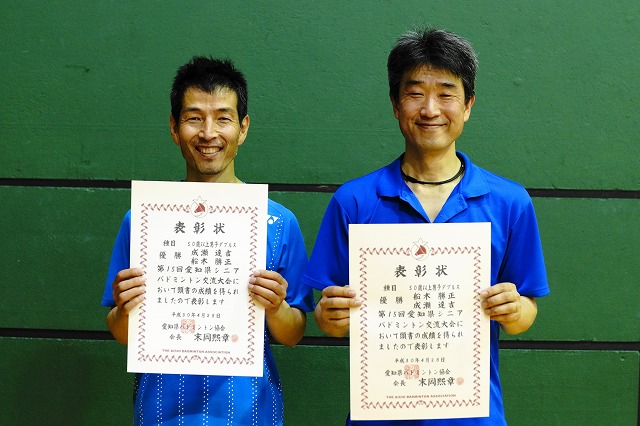 表彰状
種目 50歳以上男子ダブルス
優勝 成瀬 達吉
船木 勝正
第15回愛知県シニア
バドミントン交流大会に
おいて頭書の成績を得られ
ましたので表彰します
平成30年4月28日
愛知県バドミントン協会
会長 末岡熙章
THE AICHI BADMINTON ASSOCIATION
表彰状
種目 50歳以上男子ダブルス
優勝 船木 勝正
成瀬 達吉
第15回愛知県シニア
バドミントン交流大会に
おいて頭書の成績を得られ
ましたので表彰します
平成30年4月28日
愛知県バドミントン協会
会長 末岡熙章
THE AICHI BADMINTON ASSOCIATION